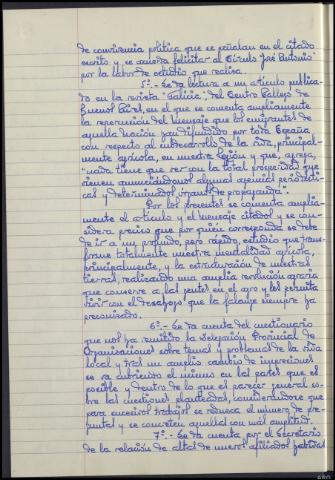 de convivencia política que se señalan en el citado
escrito y se acuerda felicitar al Círculo José Antonio
por la labor de estudio que realiza.
5º.- Se da lectura a un artículo publica-
do en la revista "Galicia", del Centro Gallego de
Buenos Aires, en el que se comenta ampliamente
la repercusión del mensaje que los emigrantes de
aquella Nación han difundido por toda España
con respecto al subdesarrollo de la vida, principal-
mente agrícola, en nuestra Región y que, agrega,
"nada tiene que ver con la total prosperidad que
vienen anunciándonos algunas agencias periodísti-
cas y determinados órganos de propaganda".
Por los presentes se comenta amplia-
mente el artículo y el mensaje citados y se con-
sidera preciso que por quien corresponda se debe
de ir a un profundo, pero rápido, estudio que trans-
forme totalmente nuestra mentalidad agrícola,
principalmente, y la estructuración de nuestras
tierras, realizando una amplia revolución agraria
que conserve a las gentes en el agro y les permita
vivir con el desahogo que la falange siempre ha
preconizado.
6º.- Se da cuenta del cuestionario
que nos ha remitido la Delegación Provincial de
Organizaciones sobre temas y problemas de la vida
local y tras un amplio cambio de impresiones
se va cubriendo el mismo en las partes que es
posible y dentro de lo que es parecer general so-
bre las cuestiones planteadas, considerándose que
para sucesivos trabajos se reduzca el número de pre-
guntas y se concreten aquellas con más amplitud.
7º.- Se da cuenta por el Secretario
de la relación de altas de nuevos afiliados